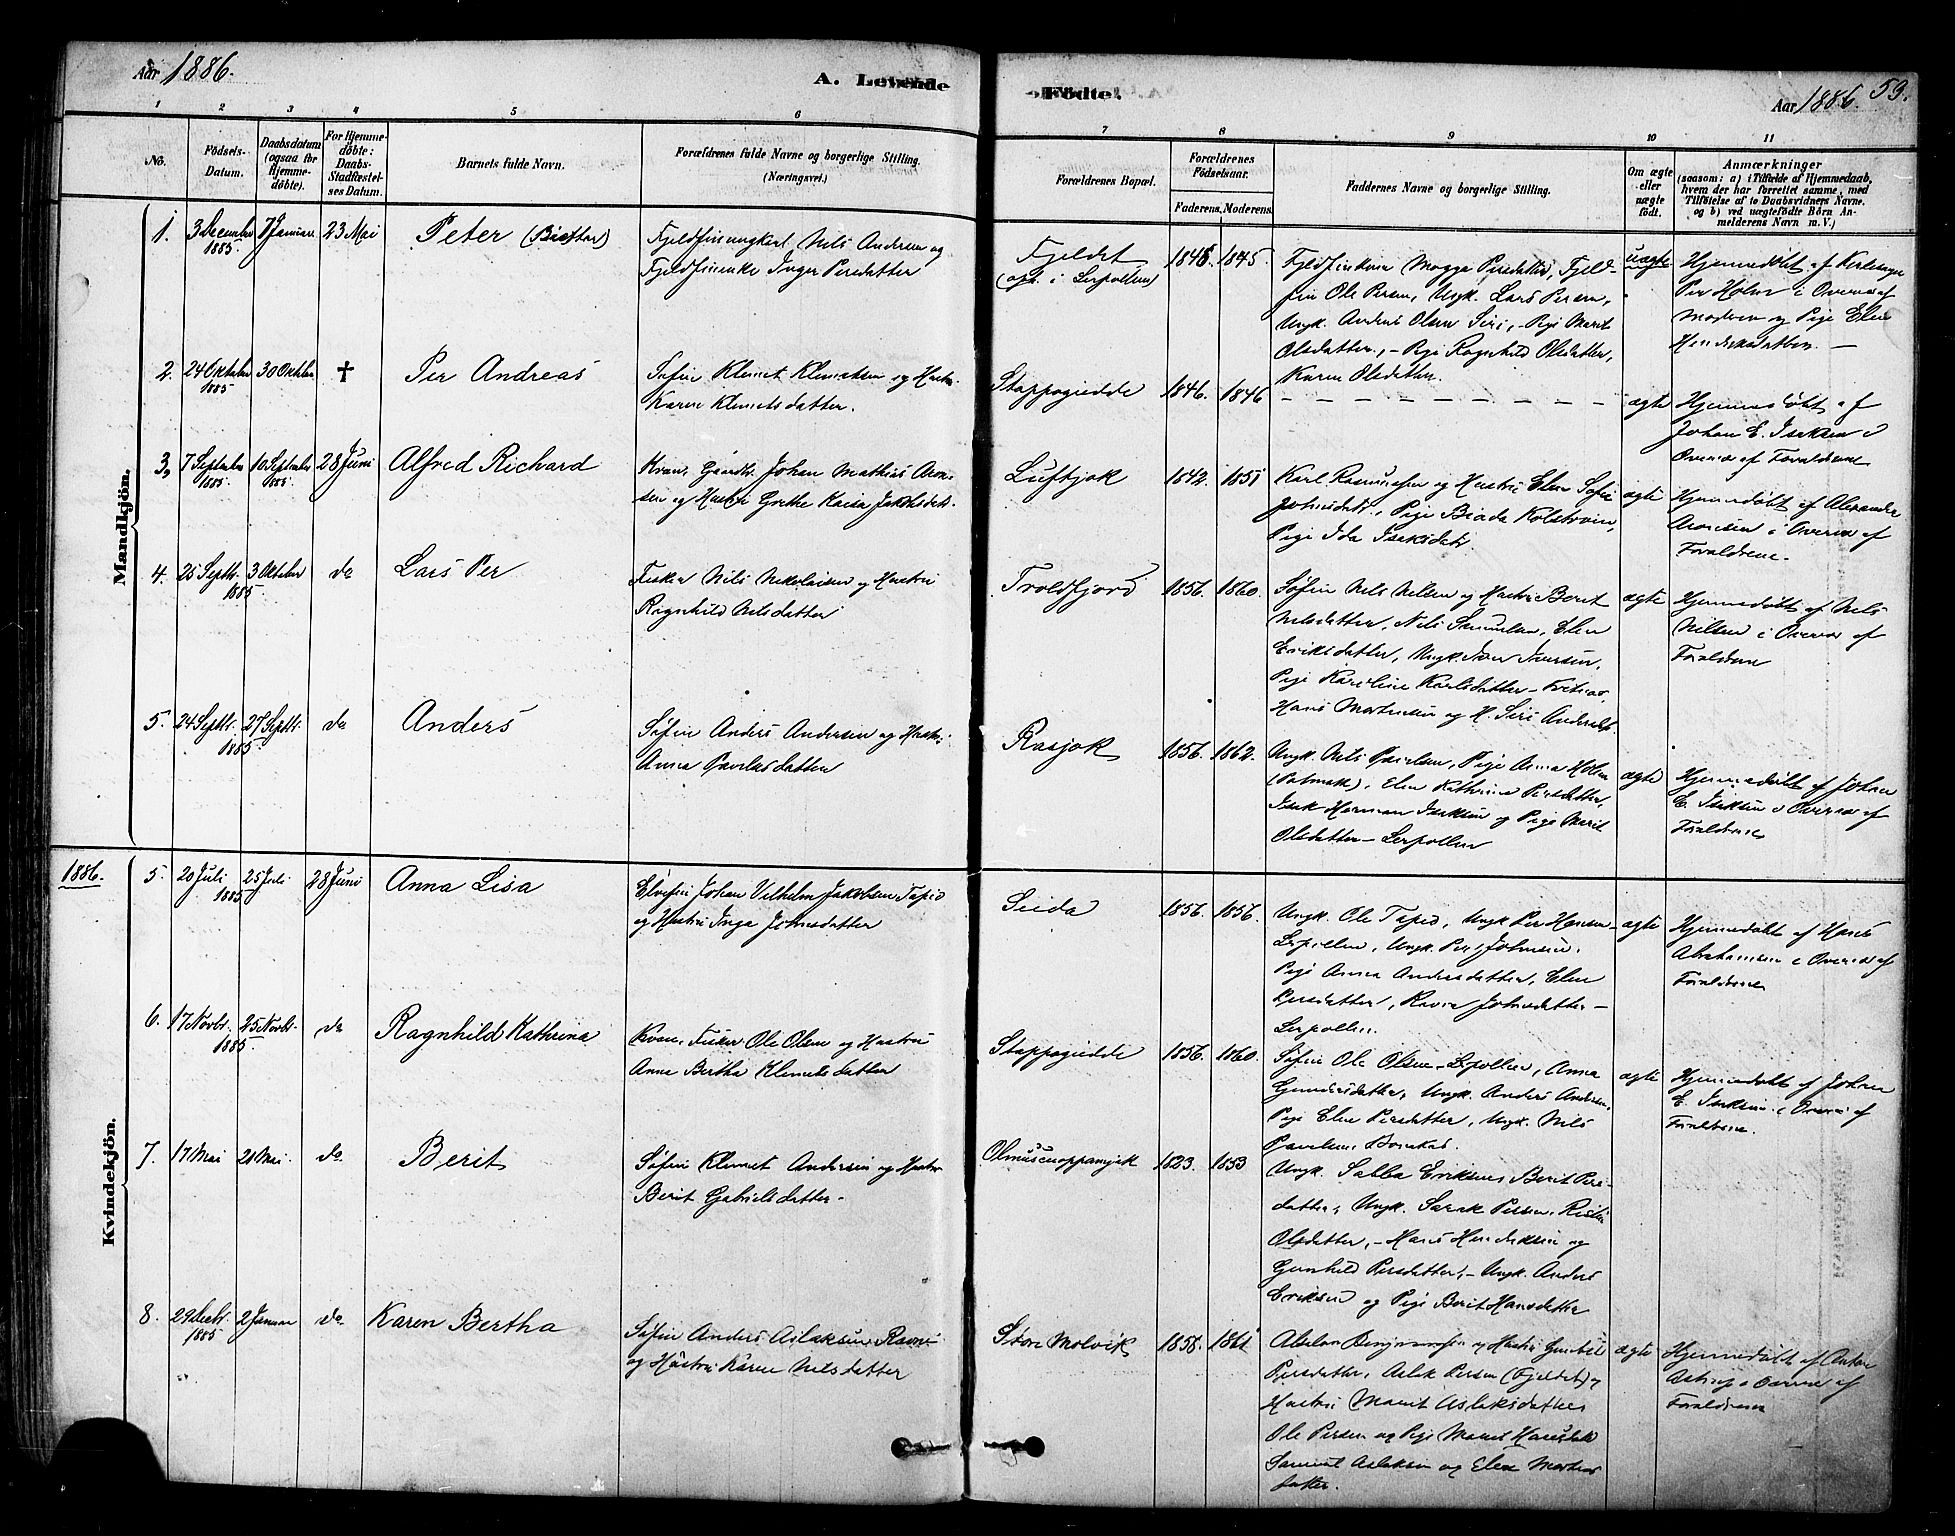 Aar 1886.
A. Levende
Födte.
Aar 1886.
53.
1 2 3 4 5 6 7 8 9 10 11
No.
Födsels-
Datum.
Daabsdatum
(ogsaa for
Hjemme-
döbte).
For Hjemme-
döbte:
Daabs-
Stadfæstel-
ses Datum.
Barnets fulde Navn.
Forældrenes fulde Navne og borgerlige Stilling.
(Næringsvei.)
Forældrenes Bopæl.
Forældrenes
Födselsaar.
Faderens. Moderens.
Faddernes Navne og borgerlige Stilling.
Om ægte
eller
uægte
födt.
Anmærkninger
(saasom: a) i Tilfælde af Hjemmedaab,
hvem der har forrettet samme, med
Tilföielse af to Daabsvidners Navne.
og b) ved uægtefödte Börn An-
melderens Navn m. V.)
Mandkjön.
1.
3 December
1885
7 Januar
23 Mai
Peter
Nils Andersen og
Inger Persdatter
Fjeldet
1845.
Fjeld-
fin Ole Persen, Ungk. Lars Persen,
Ungk. Anders Olsen Siri, - Pige Marit
Olsdatter, - Pige Ragnhild Olsdatter,
Karen Olsdatter.
uægte
Hjemmedöbt af
Per Holm i Overvær af
Moderen og Pige Elen
Hendriksdatter. —
2.
24 Oktober
1885
30 Oktober
†
Per Andreas
Söfin Klemet Klemetsen og Hustru
Karen Klemetsdatter.
Stappogiedde
1846. 1846
- - - - - - - - -
ægte
Hjemmedöbt af
Johan E. Isaksen i
Overvær af Forældrene
3.
7 September
1885
10 September
1885
28 Juni
Alfred Richard
Kvæn, Gaardbr. Johan Mathias Aron-
sen og Hustru Grethe Kaisa Jakobsdatt.
Luftjok
1842. 1851
Karl Rasmussen og Hustru Elen Sofie
Johnsdatt., Pige Beada Kolström,
Pige Ida Isaksdatr.
ægte
Hjemmedöbt af Alexander
Aronsen i Overvær af
Forældrene.
4.
25 Septbr.
1885
3 Oktober
do
Lars Per
Fisker Nils Nikolaisen og Hustru
Ragnhild Nilsdatter
Troldfjord
1856. 1860.
Söfin Nils Nilsen og Hustru Berit
Nilsdatter, Nils Samuelsen, Elen
Eriksdatter, Ungk. Iver Iversen,
Pige Karoline Karlsdatter -
Hans Mortensen og H. Siri Andersdt.
ægte
Hjemmedöbt af Nils
Nilsen i Overvær af
Forældrene
5.
24 Septbr.
1885
27 Septbr.
do
Anders
Söfin Anders Andersen og Hustru
Anna Paulusdatter
Rasjok
1856. 1862.
Ungk. Nils Paulsen, Pige Anna Holm
(Polmak), Elen Kathrine Persdatter,
Isak Herman Isaksen og Pige Marit
Olsdatter - Lerpollen
ægte
Hjemmedöbt af Johan
E. Isaksen i Overvær af
Forældrene
1886.
Kvindekjön.
5.
20 Juli
1885
25 Juli
28 Juni
Anna Lisa
Elvefin Johan Vilhelm Jakobsen Tapio
og Hustru Inga Johnsdatter
Seida
1856. 1856.
Ungk. Ole Tapio, Ungk Per Hansen -
Lerpollen, Ungk. Per Johnsen,
Pige Anna Andersdatter, Elen
Persdatter, Johnsdatter -
Lerpollen.
ægte
Hjemmedöbt af Hans
Abrahamsen i Overvær af
Forældrene
6.
17 Novbr.
1885
25 Novbr.
do
Ragnhild Kathrina
Kvæn, Fisker Ole Olsen og Hustru
Anna Bertha Klemetsdatter
Stappogiedde
1856. 1860.
Söfin Ole Olsen - Lerpollen, Anna
Gundersdatter, Ungk. Anders Andersen,
Pige Elen Persdatter, Ungk. Nils
Paulsen,
ægte
Hjemmedöbt af Johan
E. Isaksen i Overvær af
Forældrene.
7.
17 Mai
21 Mai.
do
Berit
Söfin Klemet Andersen og Hustru
Berit Gabrielsdatter.
1823. 1853
Ungk. Sabba Eriksen, Berit Pers-
datter, Ungk. Persen,
Olsdatter, - Hans Hendriksen og
Gunhild Persdatter, - Ungk. Anders
Eriksen og Pige Berit Hansdatter
8.
29 Decbr.
1885
2 Januar
do
Karen Bertha
Söfin Anders Aslaksen Ravn
og Hustru Karen Nilsdatter
Store Molvik
1858. 1861
og Hustru Gunhild
Persdatter, Aslak Persen (Fjeldet) og
Hustru Marit Aslaksdatter
Ole Persen og Pige Marit Hansdatr
Samuel Aslaksen og Elen Mortens
datter.
ægte
Hjemmedöbt af Anton
i Overvær af
Forældrene